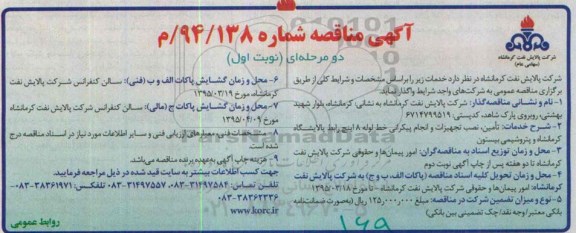 آگهی مناقصه شماره ۹۴/۱۳۸/م
دو مرحله‌ای (نوبت اول)
شرکت پالایش نفت کرمانشاه
(سهامی عام)
شرکت پالایش نفت کرمانشاه در نظر دارد خدمات زیر را براساس مشخصات و شرایط کلی از طریق
برگزاری مناقصه عمومی به شرکت‌های واجد شرایط واگذار نماید.
۱- نام و نشانی مناقصه‌گذار: شرکت پالایش نفت کرمانشاه به نشانی: کرمانشاه، بلوار شهید
بهشتی، روبروی پارک شاهد، کدپستی ۶۷۱۴۷۹۹۵۱۹
۲- شرح خدمات: تأمین، نصب تجهیزات و انجام پیگرانی خط لوله ۱۸ اینچ رابط پالایشگاه
کرمانشاه و پتروشیمی بیستون
۳- محل و زمان توزیع اسناد به مناقصه‌گران: امور پیمان‌ها و حقوقی شرکت پالایش نفت
کرمانشاه تا دو هفته پس از چاپ آگهی نوبت دوم
۴- محل و زمان تحویل کلیه اسناد مناقصه (پاکات الف، ب و ج) به شرکت پالایش نفت
کرمانشاه: امور پیمان‌ها و حقوقی شرکت پالایش نفت کرمانشاه - تا مورخ ۱۳۹۵/۰۳/۱۸
۵- نوع و میزان تضمین شرکت در مناقصه: مبلغ ۱۲۵,۰۰۰,۰۰۰ ریال (به‌صورت ضمانتنامه
بانکی معتبر/وجه نقد/چک تضمینی بین بانکی)
۶- محل و زمان گشایش پاکات الف و ب (فنی): سالن کنفرانس شرکت پالایش نفت
کرمانشاه مورخ ۱۳۹۵/۰۳/۱۹
۷- محل و زمان گشایش پاکات ج (مالی): سالن کنفرانس شرکت پالایش نفت کرمانشاه
مورخ ۱۳۹۵/۰۴/۰۹
۸- مشخصات فنی، معیارهای ارزیابی فنی و سایر اطلاعات مورد نیاز در اسناد مناقصه درج
شده است
۹- هزینه چاپ آگهی به‌عهده برنده مناقصه می‌باشد.
جهت کسب اطلاعات بیشتر به سایت قید شده در ذیل مراجعه فرمایید.
تلفن تماس: ۳۱۴۹۷۵۸۴-۰۸۳ ۳۱۴۹۷۵۵۷-۰۸۳ تلفکس: ۳۸۳۶۱۹۷۱-۰۸۳
۰۸۳-۳۸۳۶۲۳۳۶
www.korc.ir
روابط عمومی
ParsNamadData
۱۶۹